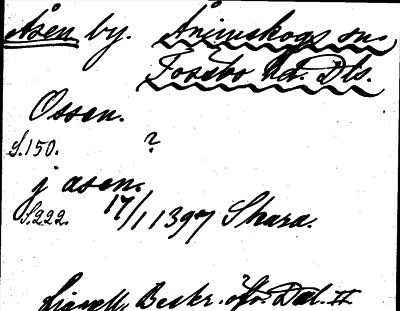 Åsen by. Ånimskogs sn.
Tössbo hd. Dls.
Ossen.
S. 150. ?
j asen.
S. 222. 17/1 1397 Skara.
Lignell, Beskr. öfv. Dal. II